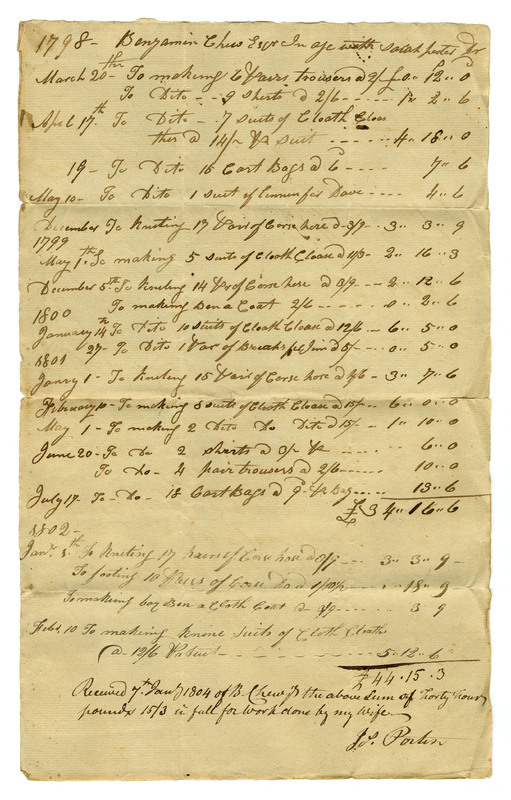 1798 - Benjamin Chew Esqr In a/c with Sarah Porter Dr
March 20th - To making 6 Pairs trousers @ 2/ £0 " 12 " 0
To Dito - 9 Shirts @ 2/6 - - - - - 1 " 2 " 6
April 17th To Dito - 7 suits of Cloath Cloas
ther @ 14/ suit - - - - 4 " 18 " 0
19 - To Dito 15 Cart Bags @ 6 - - - - 7 " 6
May 10 - To Dito 1 suit of Dave - - - - 4 " 6
December To Kniting 17 Pair of Corse hose @ 3/9 - - 3 " 3 " 9
1799
May 1th To making 5 suits of Cloth Cloase @ 11/3 - 2 " 16 " 3
December 5th To Kniting 14 Pr of Corse hose @ 3/9 - - 2 " 12 " 6
1800 To making Ben a Coat 2/6 - - - - - 0 " 2 " 6
January 14th To Dito 10 Suits of Cloath Cloase @ 12/6 - 6 " 5 " 0
27 - To Dito 1 Par of for Jim @ 5/ - - 0 " 5 " 0
1801
Janry 1 - To Kniting 15 Pair of Corse hose @ 4/6 - 3 " 7 " 6
February 10 - To making 8 suits of Cloth Cloase @ 15/ - - 6 " 0 " 0
May 1 - To making 2 Dito Do Dito @ 15/ - - 1 " 10 " 0
June 20 - To Do 2 Shirts @ 3/ Pr - - - - - 6 " 0
To Do - 4 pair trousers @ 2/6 - - - - - 10 " 0
July 17 - To - Do - 18 Cart Bags @ 9 Pr Bag - - - - - 13 " 6
£34 " 16 " 6
1802 -
Jany. 8th To Kniting 17 pairs of Corse hose @ 3/9 - - - 3 " 3 " 9 -
To footing 10 Pairs of Corse Do @ 1/10½ - - - - " 18 " 9
To making boy Ben a Cloth Coat @ 3/9 - - - - - 3 9
Febr. 10 To making suits of Cloth Cloths
@ 12/6 Pr Suit - - - - - - - - - 5 " 12 " 6
£44 . 15 . 3
Received 7th Jany 1804 of B. Chew Jr the above Sum of Forty Four
pounds 15/3 in full for work done by my Wife
Js. Porter